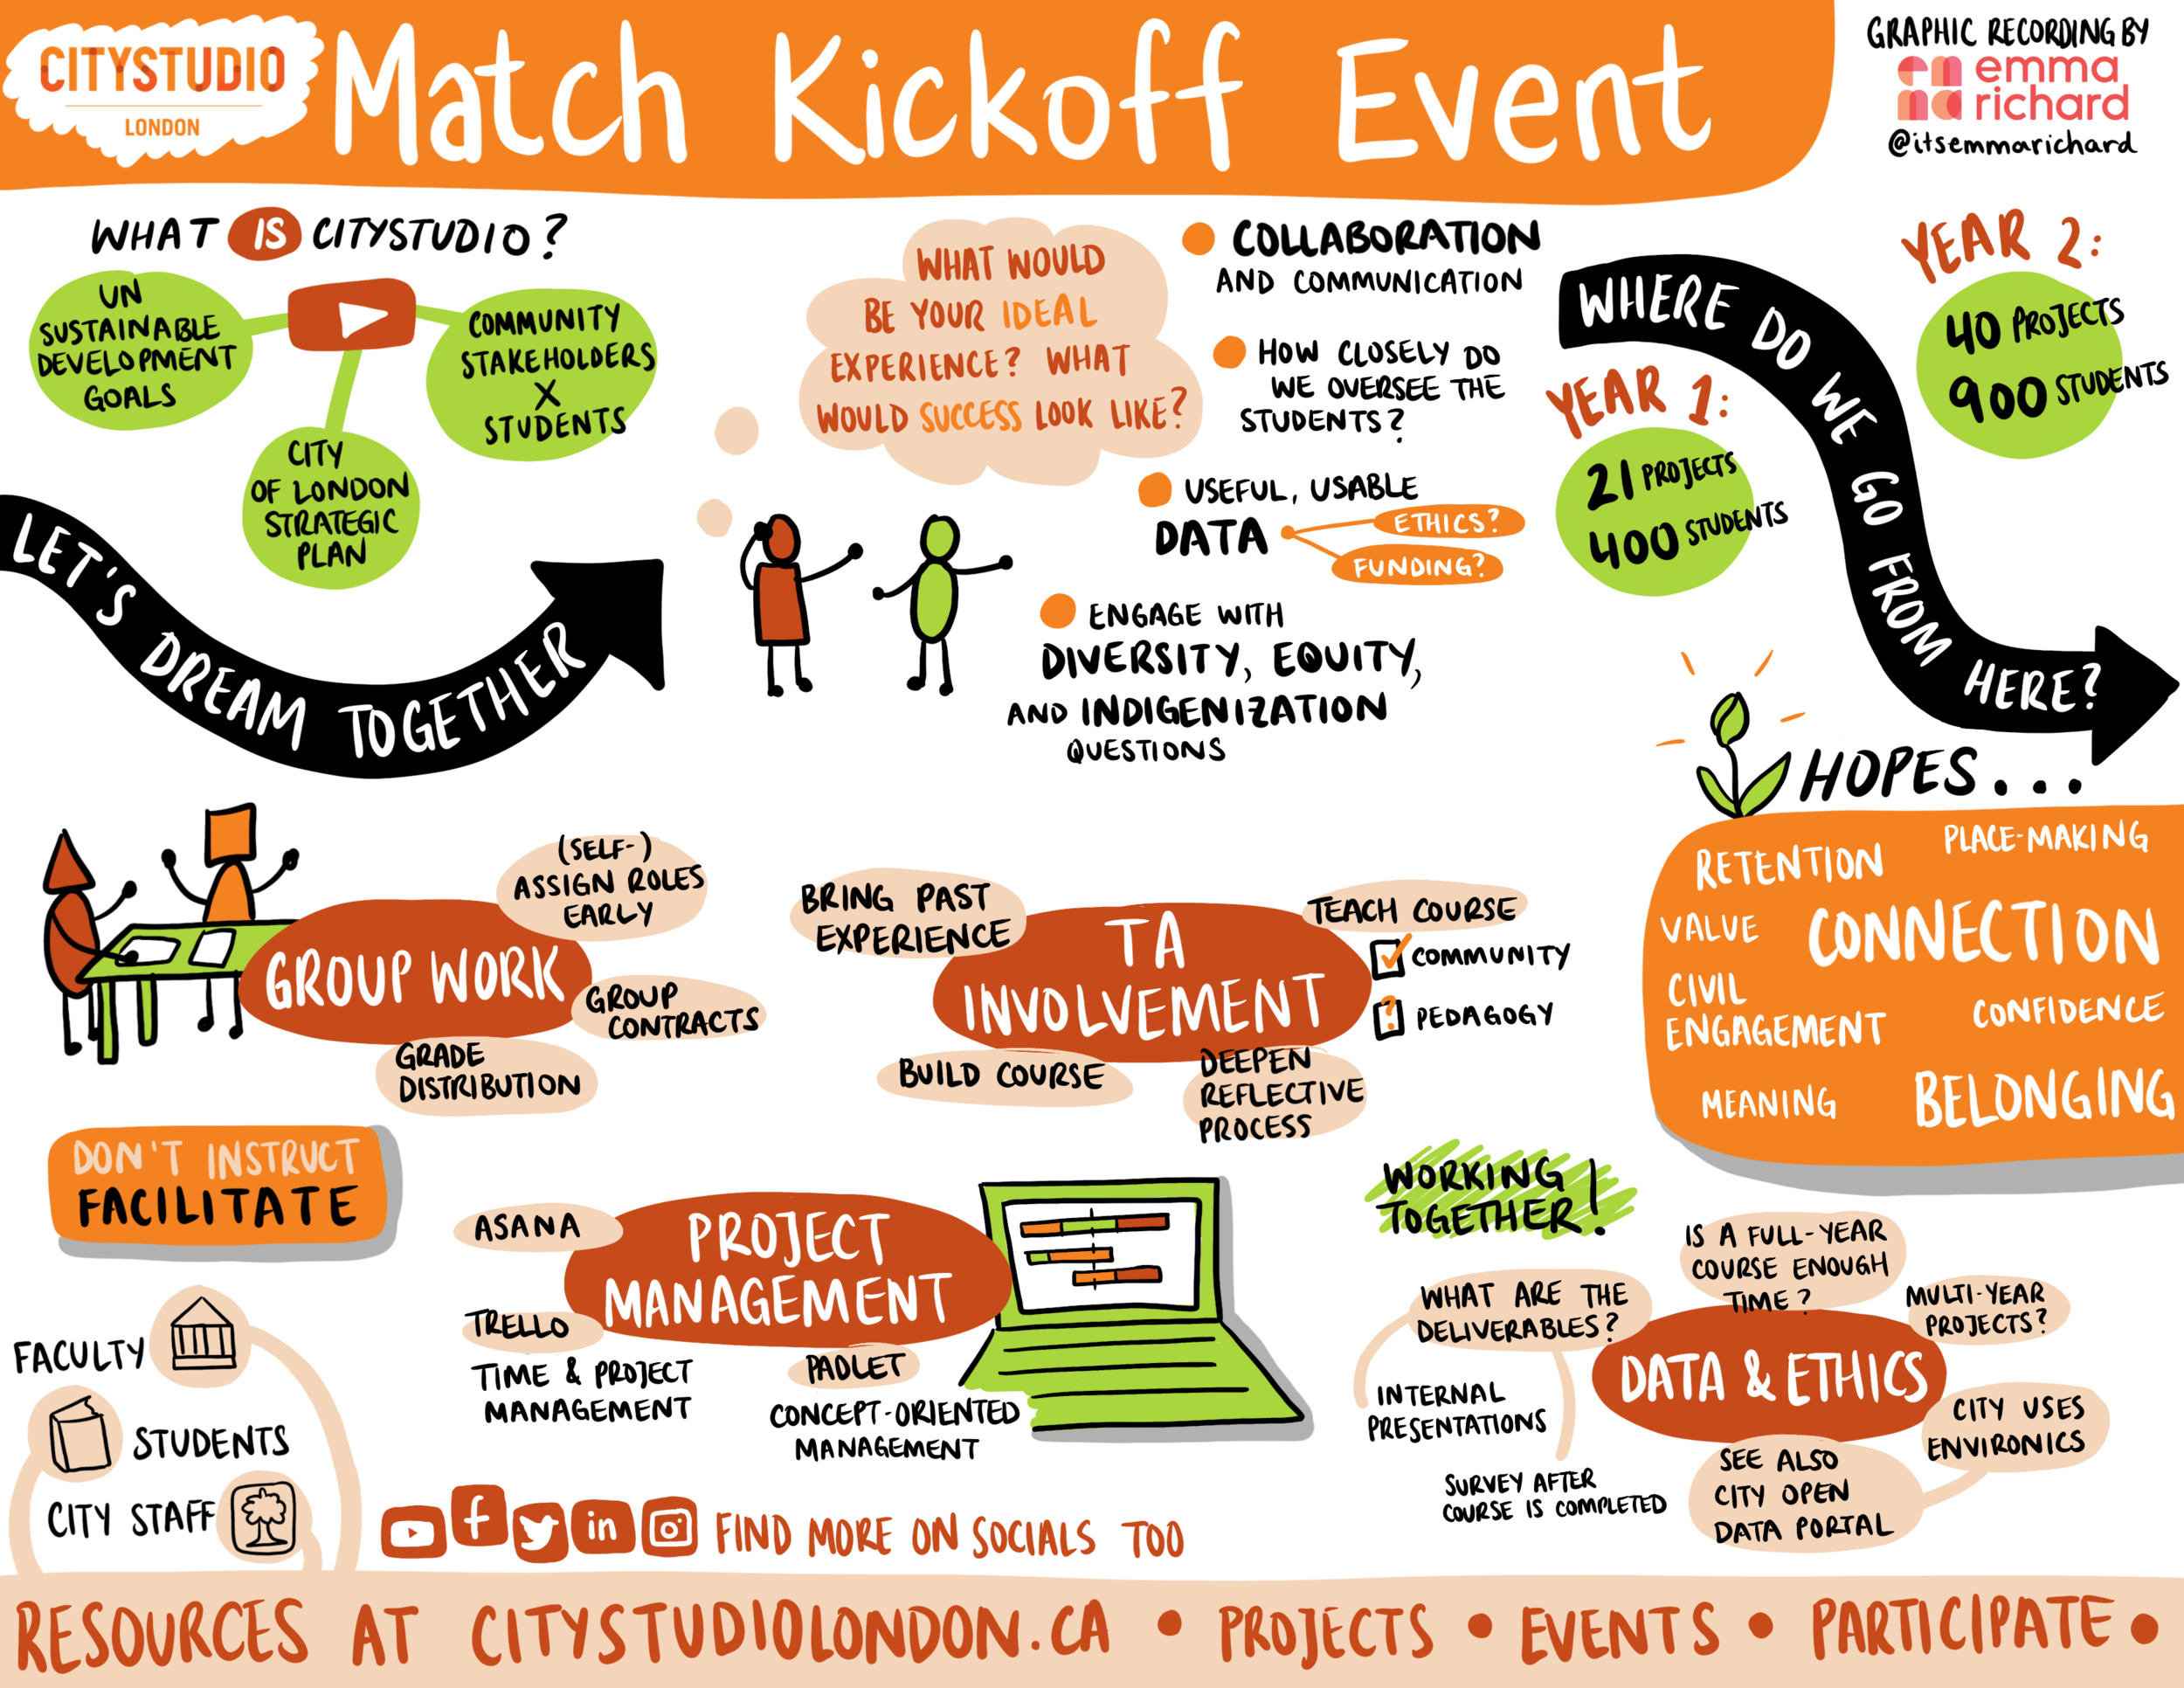 CITYSTUDIO
LONDON
Match Kickoff Event
GRAPHIC RECORDING BY
emma
richard
@itsemmarichard
WHAT IS CITYSTUDIO?
UN
SUSTAINABLE
DEVELOPMENT
GOALS
COMMUNITY
STAKEHOLDERS
X
STUDENTS
CITY
OF LONDON
STRATEGIC
PLAN
LET'S DREAM TOGETHER
WHAT WOULD
BE YOUR IDEAL
EXPERIENCE? WHAT
WOULD SUCCESS LOOK LIKE?
COLLABORATION
AND COMMUNICATION
HOW CLOSELY DO
WE OVERSEE THE
STUDENTS?
USEFUL, USABLE
DATA
ETHICS?
FUNDING?
ENGAGE WITH
DIVERSITY, EQUITY,
AND INDIGENIZATION
QUESTIONS
WHERE DO WE GO FROM HERE?
YEAR 1:
21 PROJECTS
400 STUDENTS
YEAR 2:
40 PROJECTS
900 STUDENTS
HOPES...
RETENTION
PLACE-MAKING
VALUE
CONNECTION
CIVIL
ENGAGEMENT
CONFIDENCE
MEANING
BELONGING
GROUP WORK
(SELF-)
ASSIGN ROLES
EARLY
GROUP
CONTRACTS
GRADE
DISTRIBUTION
TA
INVOLVEMENT
BRING PAST
EXPERIENCE
TEACH COURSE
COMMUNITY
? PEDAGOGY
BUILD COURSE
DEEPEN
REFLECTIVE
PROCESS
DON'T INSTRUCT
FACILITATE
FACULTY
STUDENTS
CITY STAFF
PROJECT
MANAGEMENT
ASANA
TRELLO
TIME & PROJECT
MANAGEMENT
PADLET
CONCEPT-ORIENTED
MANAGEMENT
WORKING
TOGETHER!
DATA & ETHICS
WHAT ARE THE
DELIVERABLES?
INTERNAL
PRESENTATIONS
SURVEY AFTER
COURSE IS COMPLETED
IS A FULL-YEAR
COURSE ENOUGH
TIME?
MULTI-YEAR
PROJECTS?
CITY USES
ENVIRONICS
SEE ALSO
CITY OPEN
DATA PORTAL
f
in
FIND MORE ON SOCIALS TOO
RESOURCES AT CITYSTUDIOLONDON.CA • PROJECTS • EVENTS • PARTICIPATE •